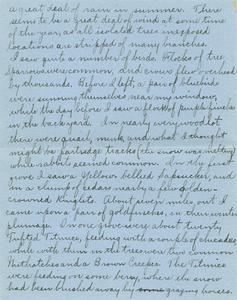 a great deal of rain in summer. There
seems to be a great deal of wind at some time
of the year, as all isolated trees in exposed
locations are stripped of many branches.
I saw quite a number of birds. Flocks of tree
sparrows were common, and crows flew overhead
by thousands. Before I left, a pair of bluebirds
were sunning themselves near my window,
while the day before I saw a flock of purple finches
in the backyard. In nearly every woodlot
there were quail, mink and what I thought
might be partridge tracks (the snow was melting)
while rabbit seemed common. In the first
grove I saw a Yellow bellied Sapsucker, and
in a clump of cedars nearby a few golden-
crowned Kinglets. About seven miles out I
came upon a pair of goldfinches, in their winter
plumage. In one grove were about twenty
Tufted Titmice, feeding with a couple of chickadees
while with them in the trees were two common
Nuthatches and a Brown Creeper. The Titmice
were feeding on some berry, where the snow
had been brushed away by grazing horses.